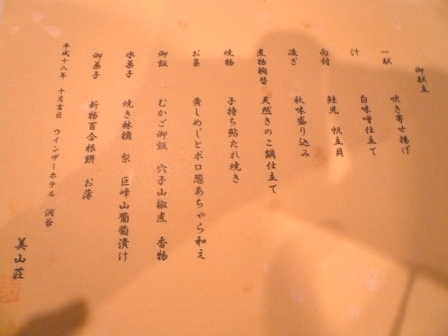 御献立
一献 吹き寄せ揚げ
汁 白味噌仕立て
向付 鮭児 帆立貝
凌ぎ 秋味盛り込み
煮物椀替 天然きのこ鍋仕立て
焼物 子持ち鮎たれ焼き
お菜 黄しめじとボロ葱あちゃら和え
御飯 むかご御飯 穴子山椒煮 香物
水菓子 焼き林檎 梨 巨峰山葡萄漬け
御菓子 新物百合根餅 お薄
平成十八年 十月吉日 ウインザーホテル 洞爺
美山荘